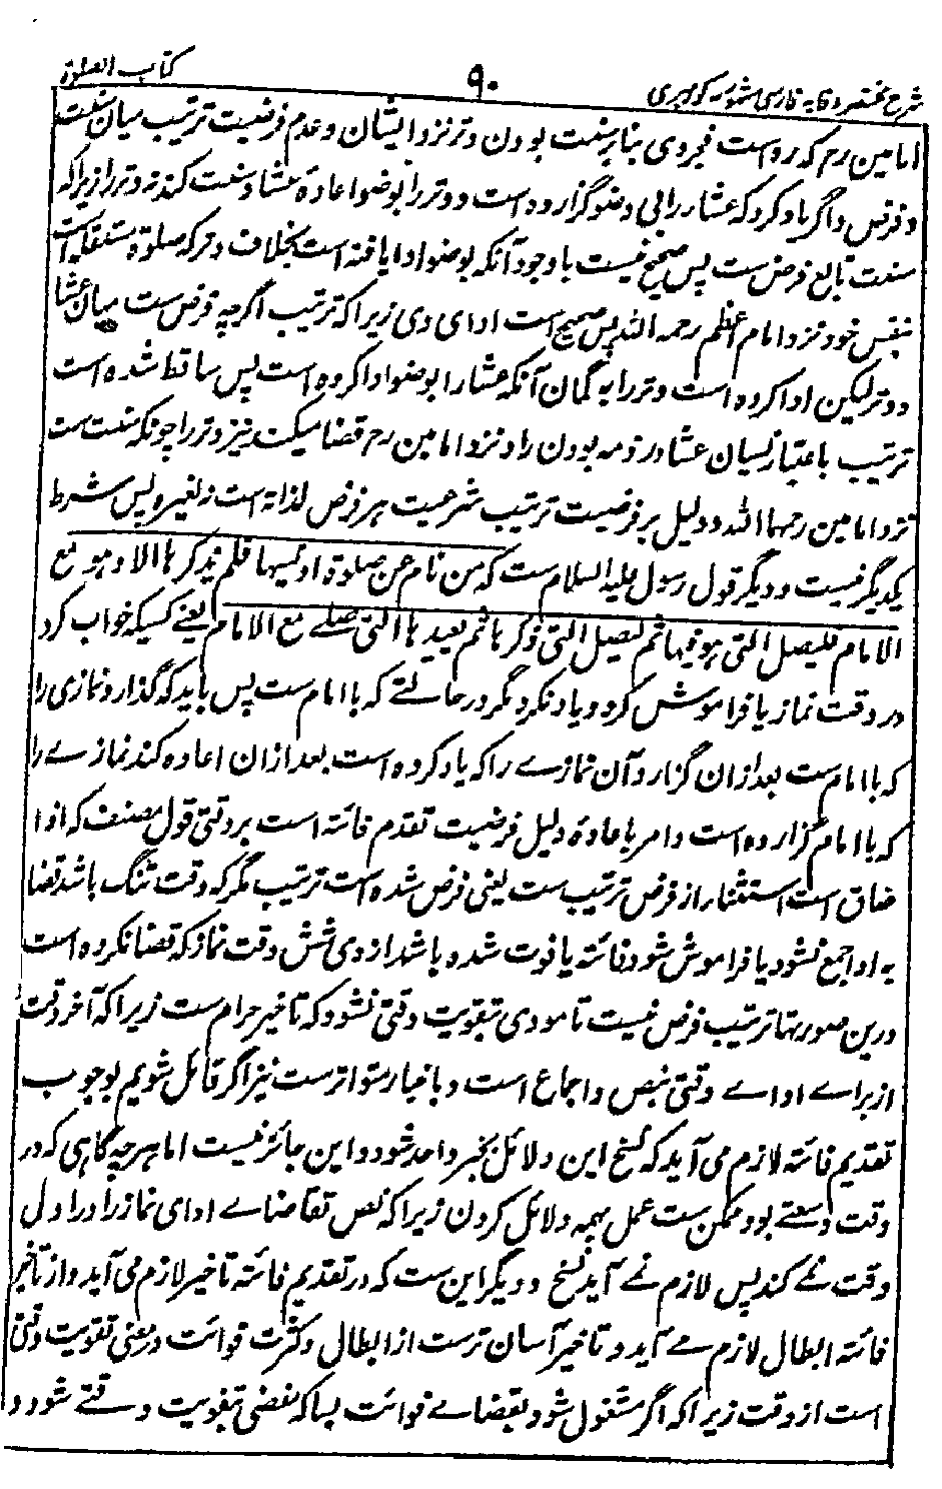 کتاب الصلوة
۹۰
شرح مختصر وقایه فارسی
امامین رح که رواست فجر وی بنا بر سنت بودن وتر نزد ایشان و عدم فرضیت ترتیب میان سنت
و فرض و اگر یاد کرد که عشا را بی وضو گزارده است و وتر را بوضو اعادۀ عشا و سنت کند نه وتر را زیرا که
سنت تابع فرض ست پس صحیح نیست باوجود آنکه بوضو ادا یافته است بخلاف وتر که صلوة مستقله است
بنفس خود نزد امام اعظم رحمه الله پس صحیح است ادای وی زیرا که ترتیب اگرچه فرض ست میان عشا
و وتر لیکن ادا کرده است وتر را به گمان آنکه عشا را بوضو ادا کرده است پس ساقط شده است
ترتیب باعتبار نسیان عشا در ذمه بودن را و نزد امامین رح قضا میکند نیز وتر را چونکه سنت ست
نزد امامین رحمهما الله و دلیل بر فرضیت ترتیب شرعیت هر فرض لذاته است نه لغیره پس شرط
یکدیگر نیست و دیگر قول رسول علیه السلام ست که من نام عن صلوة او نسیها فلم یذکرها الا و هو مع
الامام فلیصل التی هو فیها ثم لیصل التی ذکرها ثم لیعید ها التی صلے مع الامام یعنے کسیکه خواب کرد
در وقت نماز یا فراموش کرد و یاد نکرد مگر در حالتے که با امام ست پس باید که گذارد نمازی را
که با امام ست بعد ازان گزارد آن نمازے را که یاد کرده است بعد ازان اعاده کند نمازے را
که با امام گزارده است و امر باعادۀ دلیل فرضیت تقدم فائته است بر وقتی قول مصنف که اذا
ضاق است استثنا از فرض ترتیب ست یعنی فرض شده است ترتیب مگر که وقت تنگ باشد قضا
به ادا جمع نشود یا فراموش شود فائته یا فوت شده باشد از وی شش وقت نماز که قضا نکرده است
درین صورتها ترتیب فرض نیست تا مودی بتفویت وقتی نشود که تاخیر حرام ست زیرا که آخر وقت
از براے اداے وقتی بنص و اجماع است و باخبار متواترست نیز اگر قائل شویم بوجوب
تقدیم فائته لازم می آید که نسخ این دلائل بخبر واحد شود و این جائز نیست اما هرچه گاهی که در
وقت وسعتے بود ممکن ست عمل بهمه دلائل کردن زیرا که نص تقاضاے ادای نماز را در اول
وقت نے کند پس لازم نے آید نسخ و دیگر این ست که در تقدیم فائته تاخیر لازم می آید و از تاخیر
فائته ابطال لازم مے آید و تاخیر آسان ترست از ابطال و کثرت فوائت در معنی تفویت وقتی
است از وقت زیرا که اگر مشغول شود بقضاے فوائت بساکه مفضی بتفویت وقتے شود و